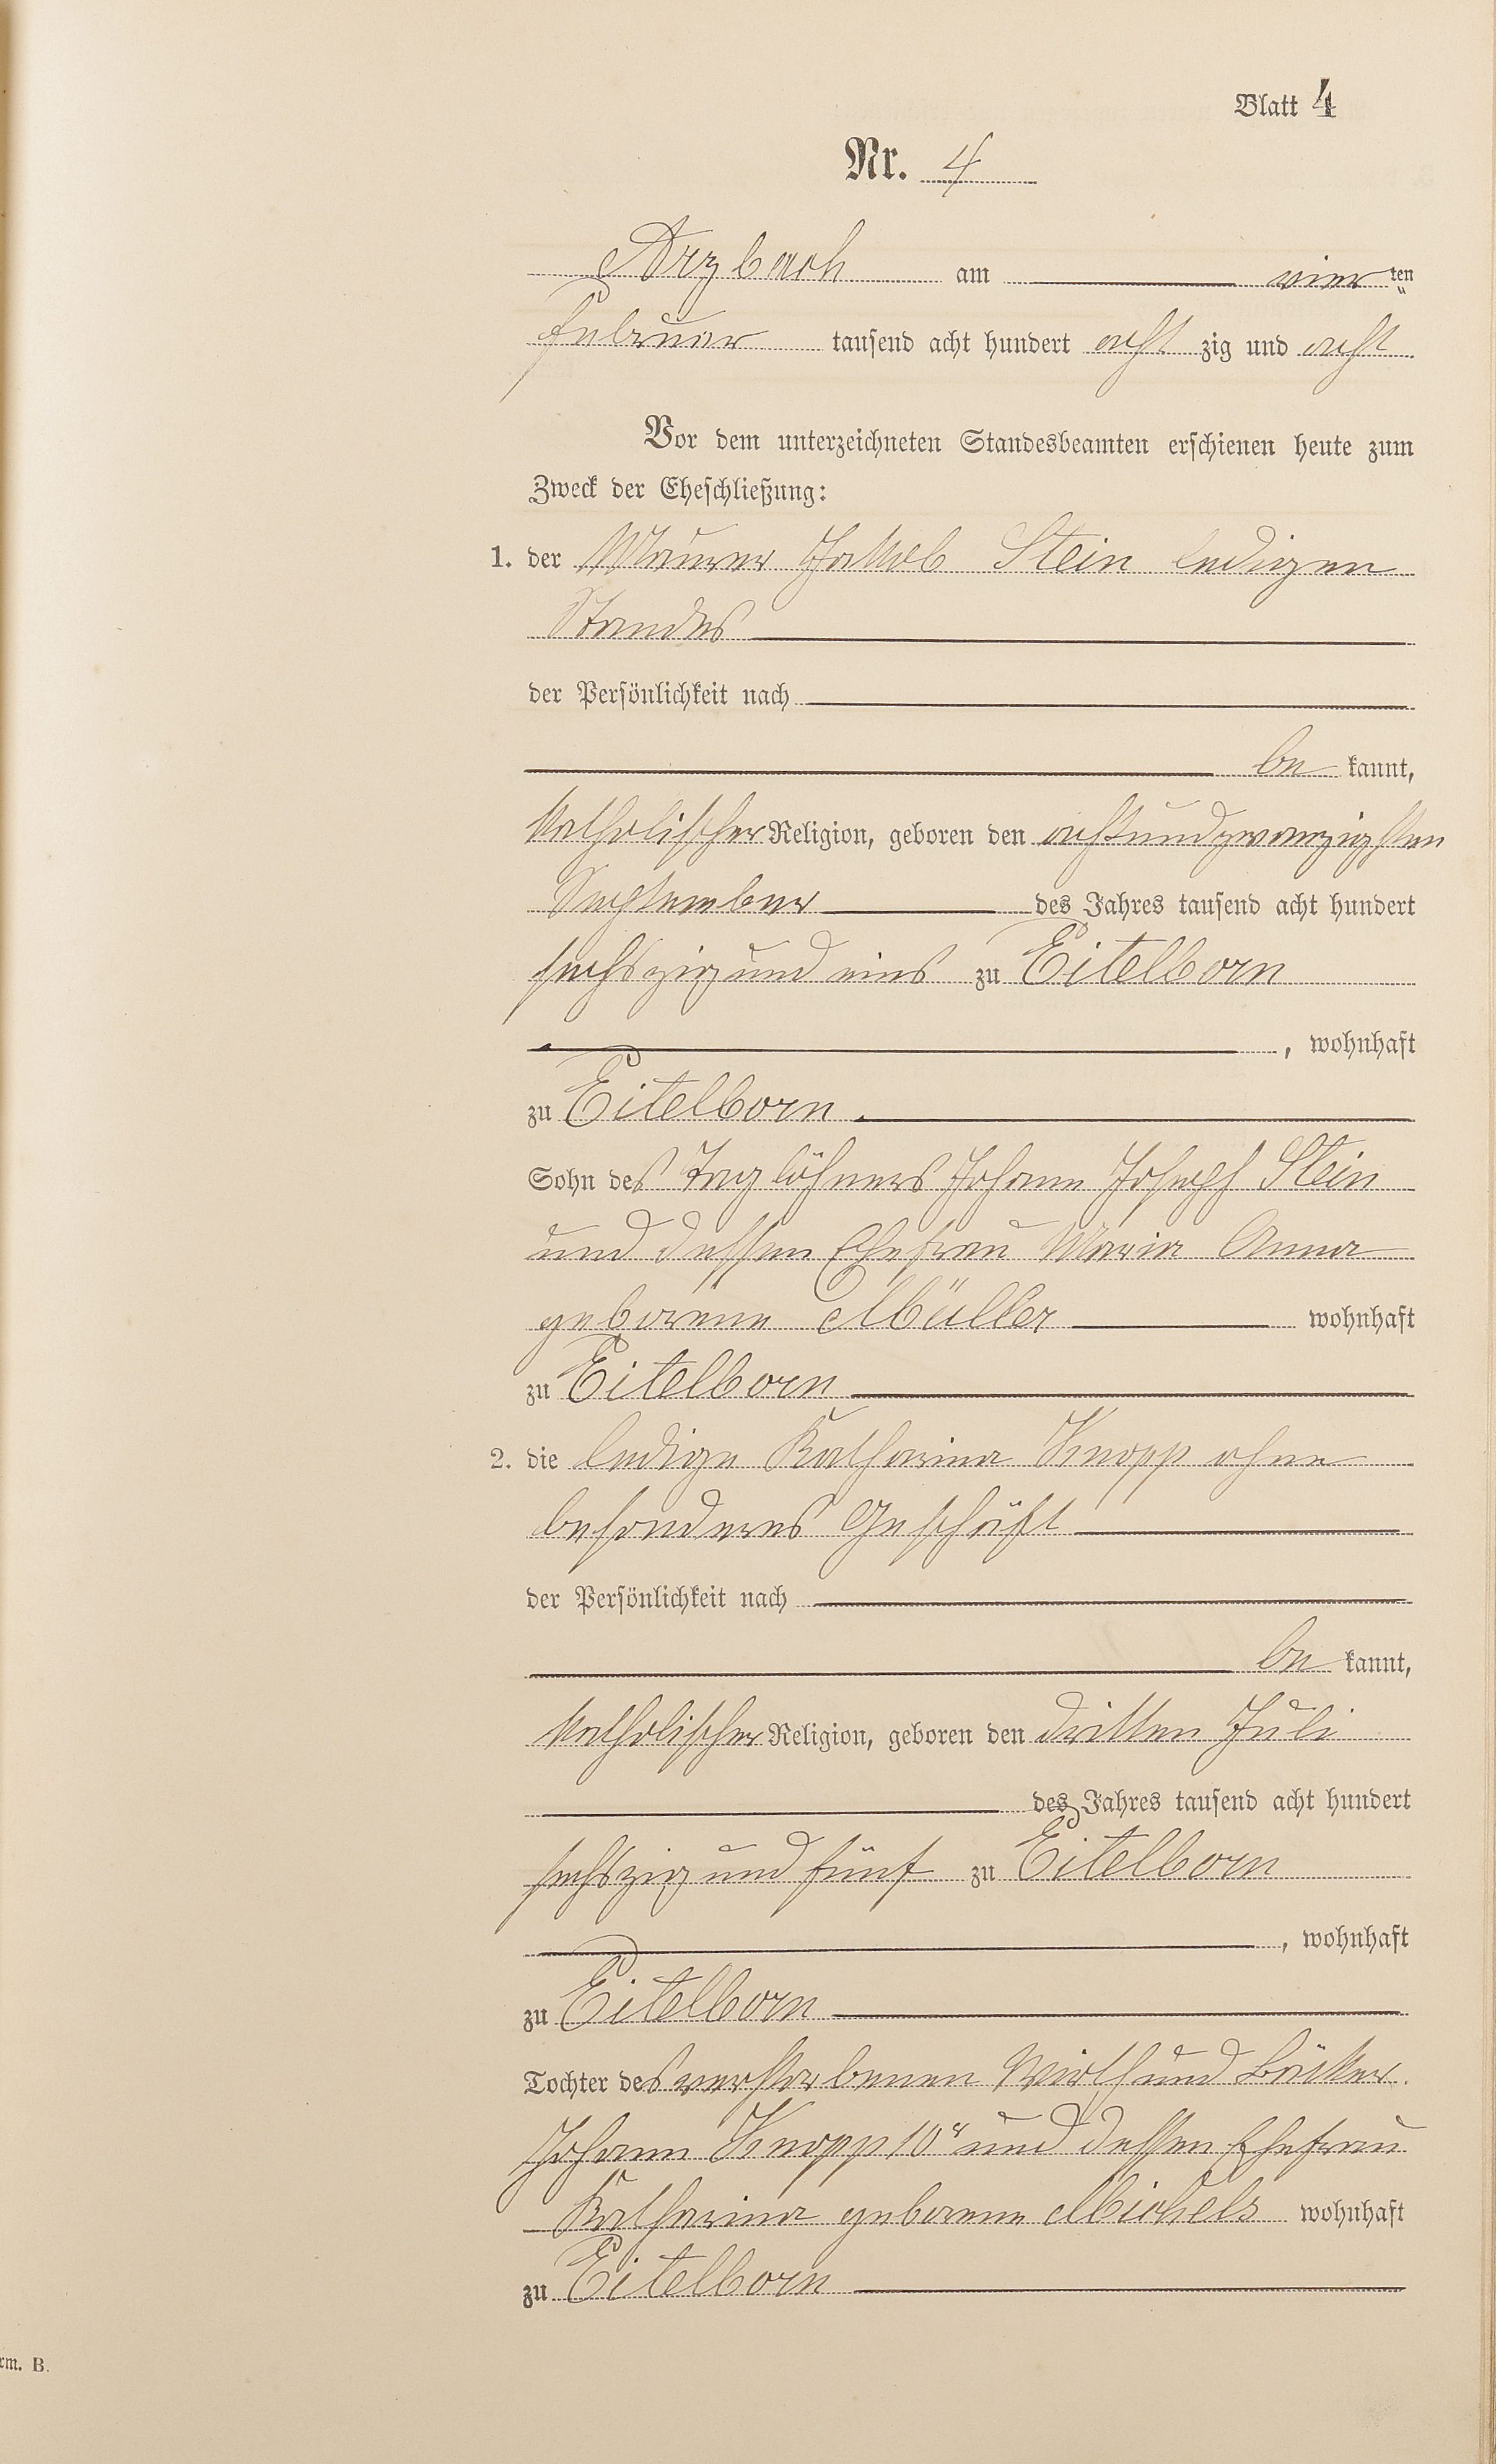 Blatt 4
Nr. 4
Arzbach am vierten
Februar tausend acht hundert acht zig und acht
Vor dem unterzeichneten Standesbeamten erschienen heute zum
Zweck der Eheschließung:
1. der Maurer Jakob Stein ledigen
Standes
der Persönlichkeit nach
be kannt,
katholischer Religion, geboren den achtundzwanzigsten
September des Jahres tausend acht hundert
sechszig und eins zu Eitelborn
, wohnhaft
zu Eitelborn.
Sohn des Taglöhners Johann Joseph Stein
und dessen Ehefrau Maria Anna
geborene Müller wohnhaft
zu Eitelborn
2. die ledige Katharina Knopp ohne
besonderes Geschäft
der Persönlichkeit nach
be kannt,
katholischer Religion, geboren den dritten Juli
des Jahres tausend acht hundert
sechszig und fünf zu Eitelborn
, wohnhaft
zu Eitelborn
Tochter des verstorbenen Wirth und Bäcker
Johann Knopp 10r und dessen Ehefrau
Katharina geborene Michels wohnhaft
zu Eitelborn
rm. B.